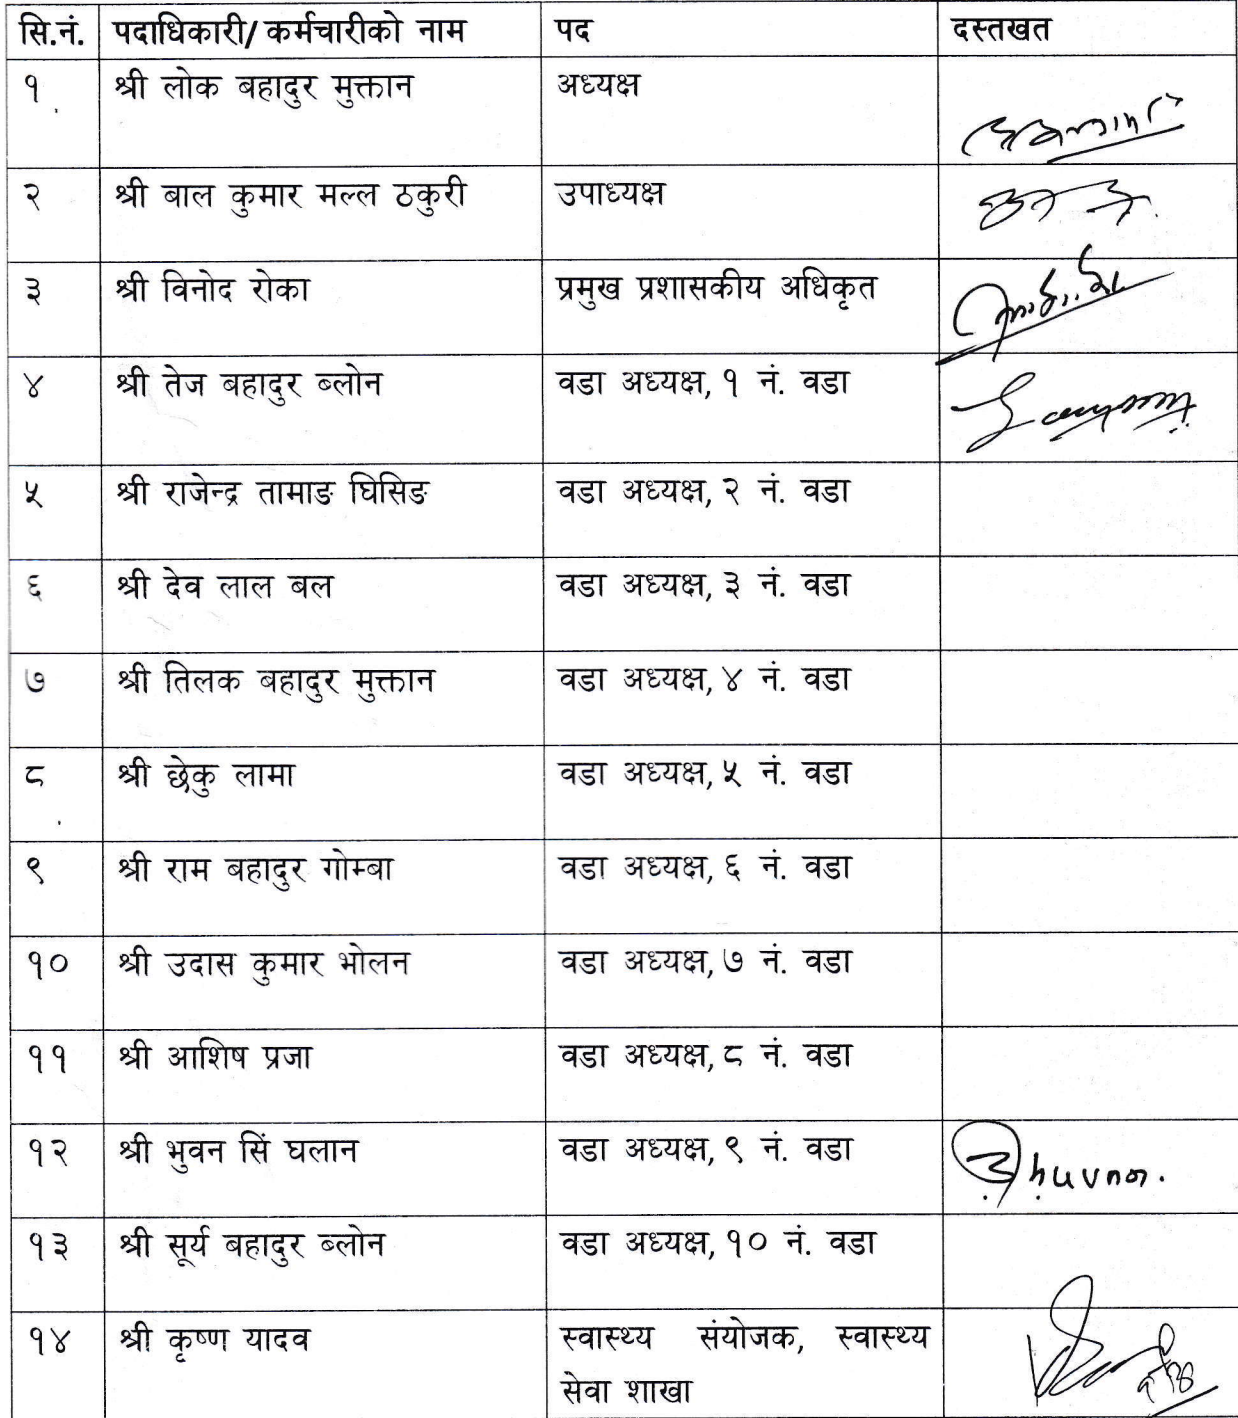 सि.नं. पदाधिकारी/ कर्मचारीको नाम पद दस्तखत
१ श्री लोक बहादुर मुक्तान अध्यक्ष
२ श्री बाल कुमार मल्ल ठकुरी उपाध्यक्ष
३ श्री विनोद रोका प्रमुख प्रशासकीय अधिकृत
४ श्री तेज बहादुर ब्लोन वडा अध्यक्ष, १ नं. वडा
५ श्री राजेन्द्र तामाङ घिसिङ वडा अध्यक्ष, २ नं. वडा
६ श्री देव लाल बल वडा अध्यक्ष, ३ नं. वडा
७ श्री तिलक बहादुर मुक्तान वडा अध्यक्ष, ४ नं. वडा
८ श्री छेकु लामा वडा अध्यक्ष, ५ नं. वडा
९ श्री राम बहादुर गोम्बा वडा अध्यक्ष, ६ नं. वडा
१० श्री उदास कुमार भोलन वडा अध्यक्ष, ७ नं. वडा
११ श्री आशिष प्रजा वडा अध्यक्ष, ८ नं. वडा
१२ श्री भुवन सिं घलान वडा अध्यक्ष, ९ नं. वडा Bhuvan.
१३ श्री सूर्य बहादुर ब्लोन वडा अध्यक्ष, १० नं. वडा
१४ श्री कृष्ण यादव स्वास्थ्य संयोजक, स्वास्थ्य
सेवा शाखा